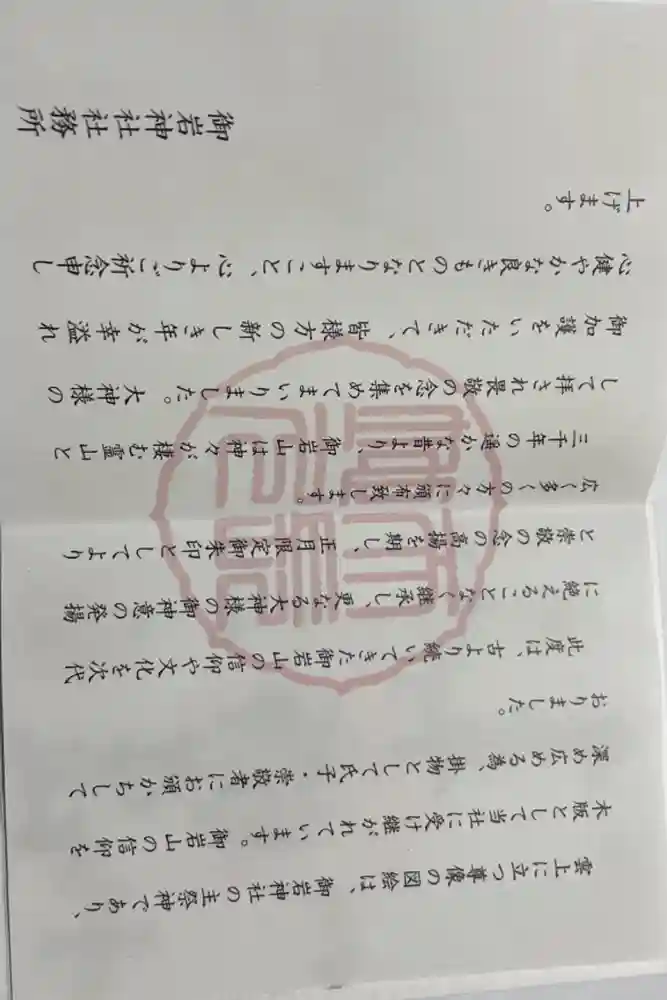 雲上に立つ尊像の図絵は、御岩神社の主祭神であり、
木版として当社に受け継がれています。御岩山の信仰を
深め広める為、掛物として氏子・崇敬者にお頒かちして
おりました。
此度は、古より続いてきた御岩山の信仰や文化を次代
に絶えることなく継承し、更なる大神様の御神意の発揚
と崇敬の念の高揚を期し、正月限定御朱印としてより
広く多くの方々に頒布致します。
三千年の遥かな昔より、御岩山は神々が棲む霊山と
して拝され畏敬の念を集めてまいりました。大神様の
御加護をいただきて、皆様方の新しき年が幸溢れ
心健やかな良きものとなりますこと、心よりご祈念申し
上げます。
御岩神社社務所